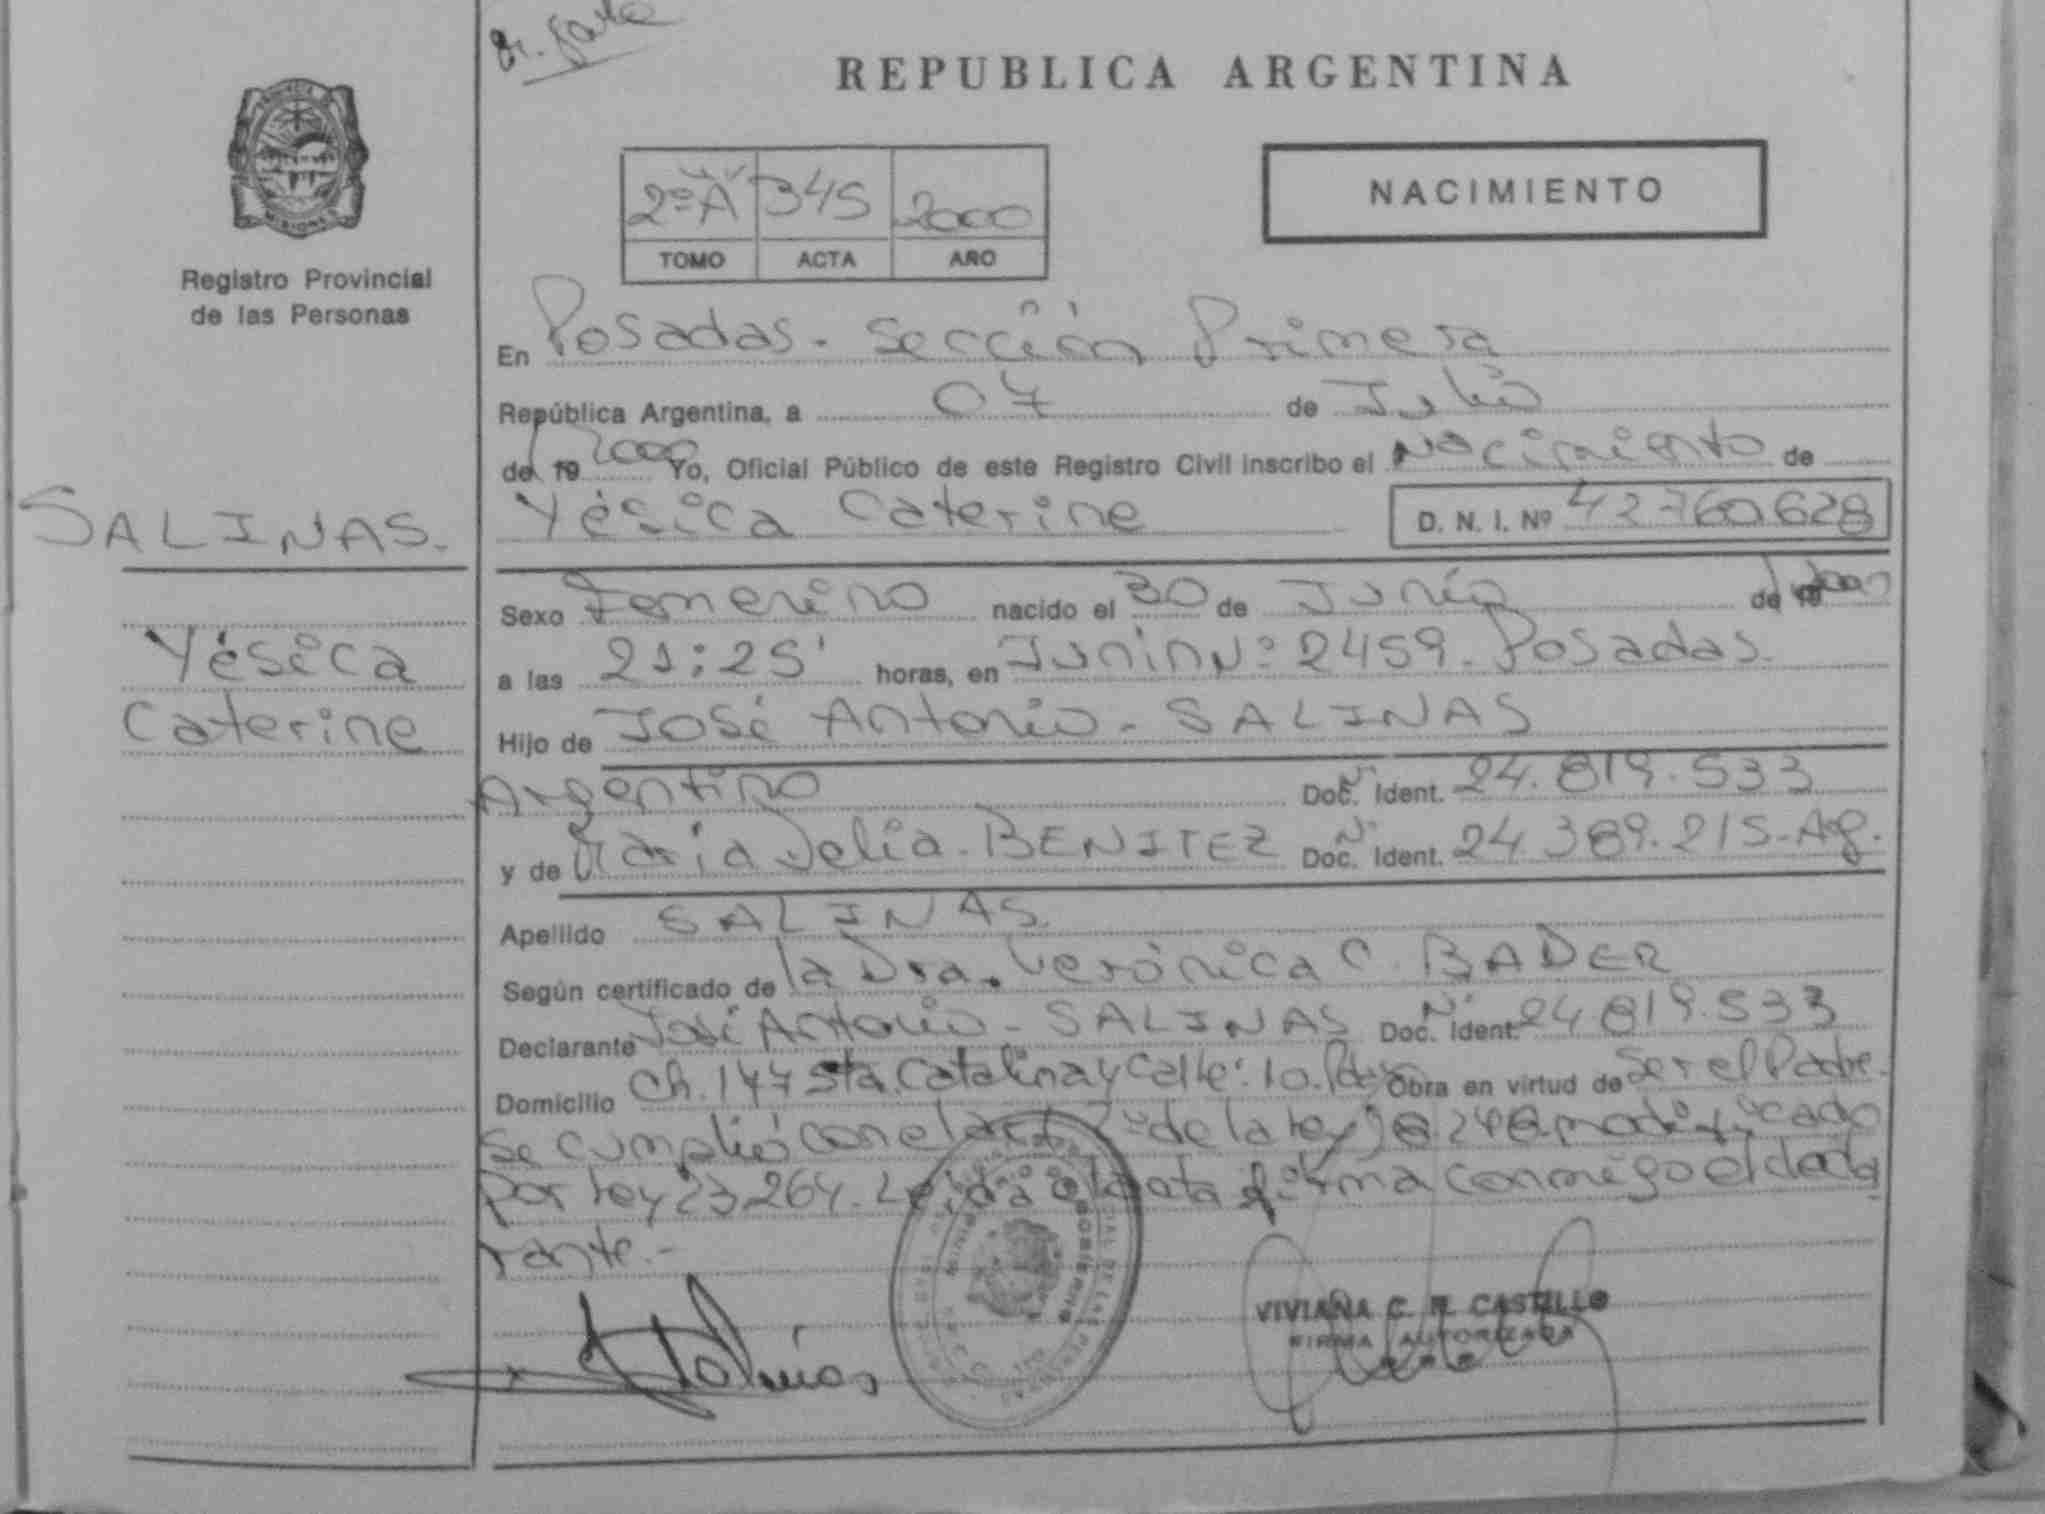 REPUBLICA ARGENTINA
PROVINCIA DE
MISIONES
Registro Provincial
de las Personas
2º A 345 2000
TOMO ACTA AÑO
NACIMIENTO
En Posadas. Sección Primera
República Argentina, a 07 de Julio
de 19 2000 Yo, Oficial Público de este Registro Civil inscribo el Nacimiento de
SALINAS.
Yésica Caterine D. N. I. Nº 42760628
Sexo Femenino nacido el 30 de Junio de 19 2000
Yésica
a las 21:25' horas, en Junin Nº 2459. Posadas.
Caterine
Hijo de José Antonio - SALINAS
Argentino Doc. Nº Ident. 24.819.533
y de María Delia - BENITEZ Doc. Nº Ident. 24.389.215-Arg.
Apellido SALINAS.
Según certificado de la Dra. Verónica C. BADER
Declarante José Antonio - SALINAS Doc. Nº Ident. 24.819.533
Domicilio Ch. 147 Sta. Catalina y Calle: 10. Pdas Obra en virtud de Ser el Padre.
Se cumplió con el art. 2º de la ley 18.248 modificado
por ley 23.264. Leida el acta firma conmigo el decla
rante.-
VIVIANA C. R. CASTILLO
FIRMA AUTORIZADA